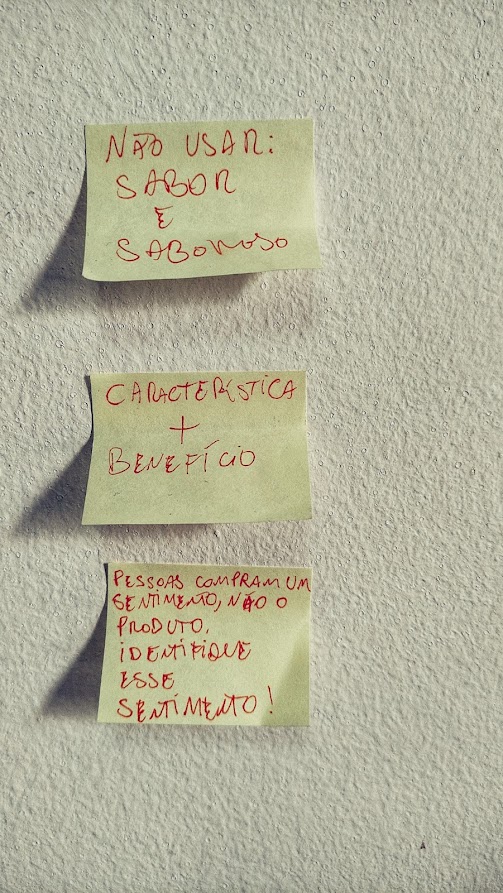 NÃO USAR:
SABOR
E
SABOROSO
CARACTERÍSTICA
+
BENEFÍCIO
PESSOAS COMPRAM UM
SENTIMENTO, NÃO O
PRODUTO.
IDENTIFIQUE
ESSE
SENTIMENTO!